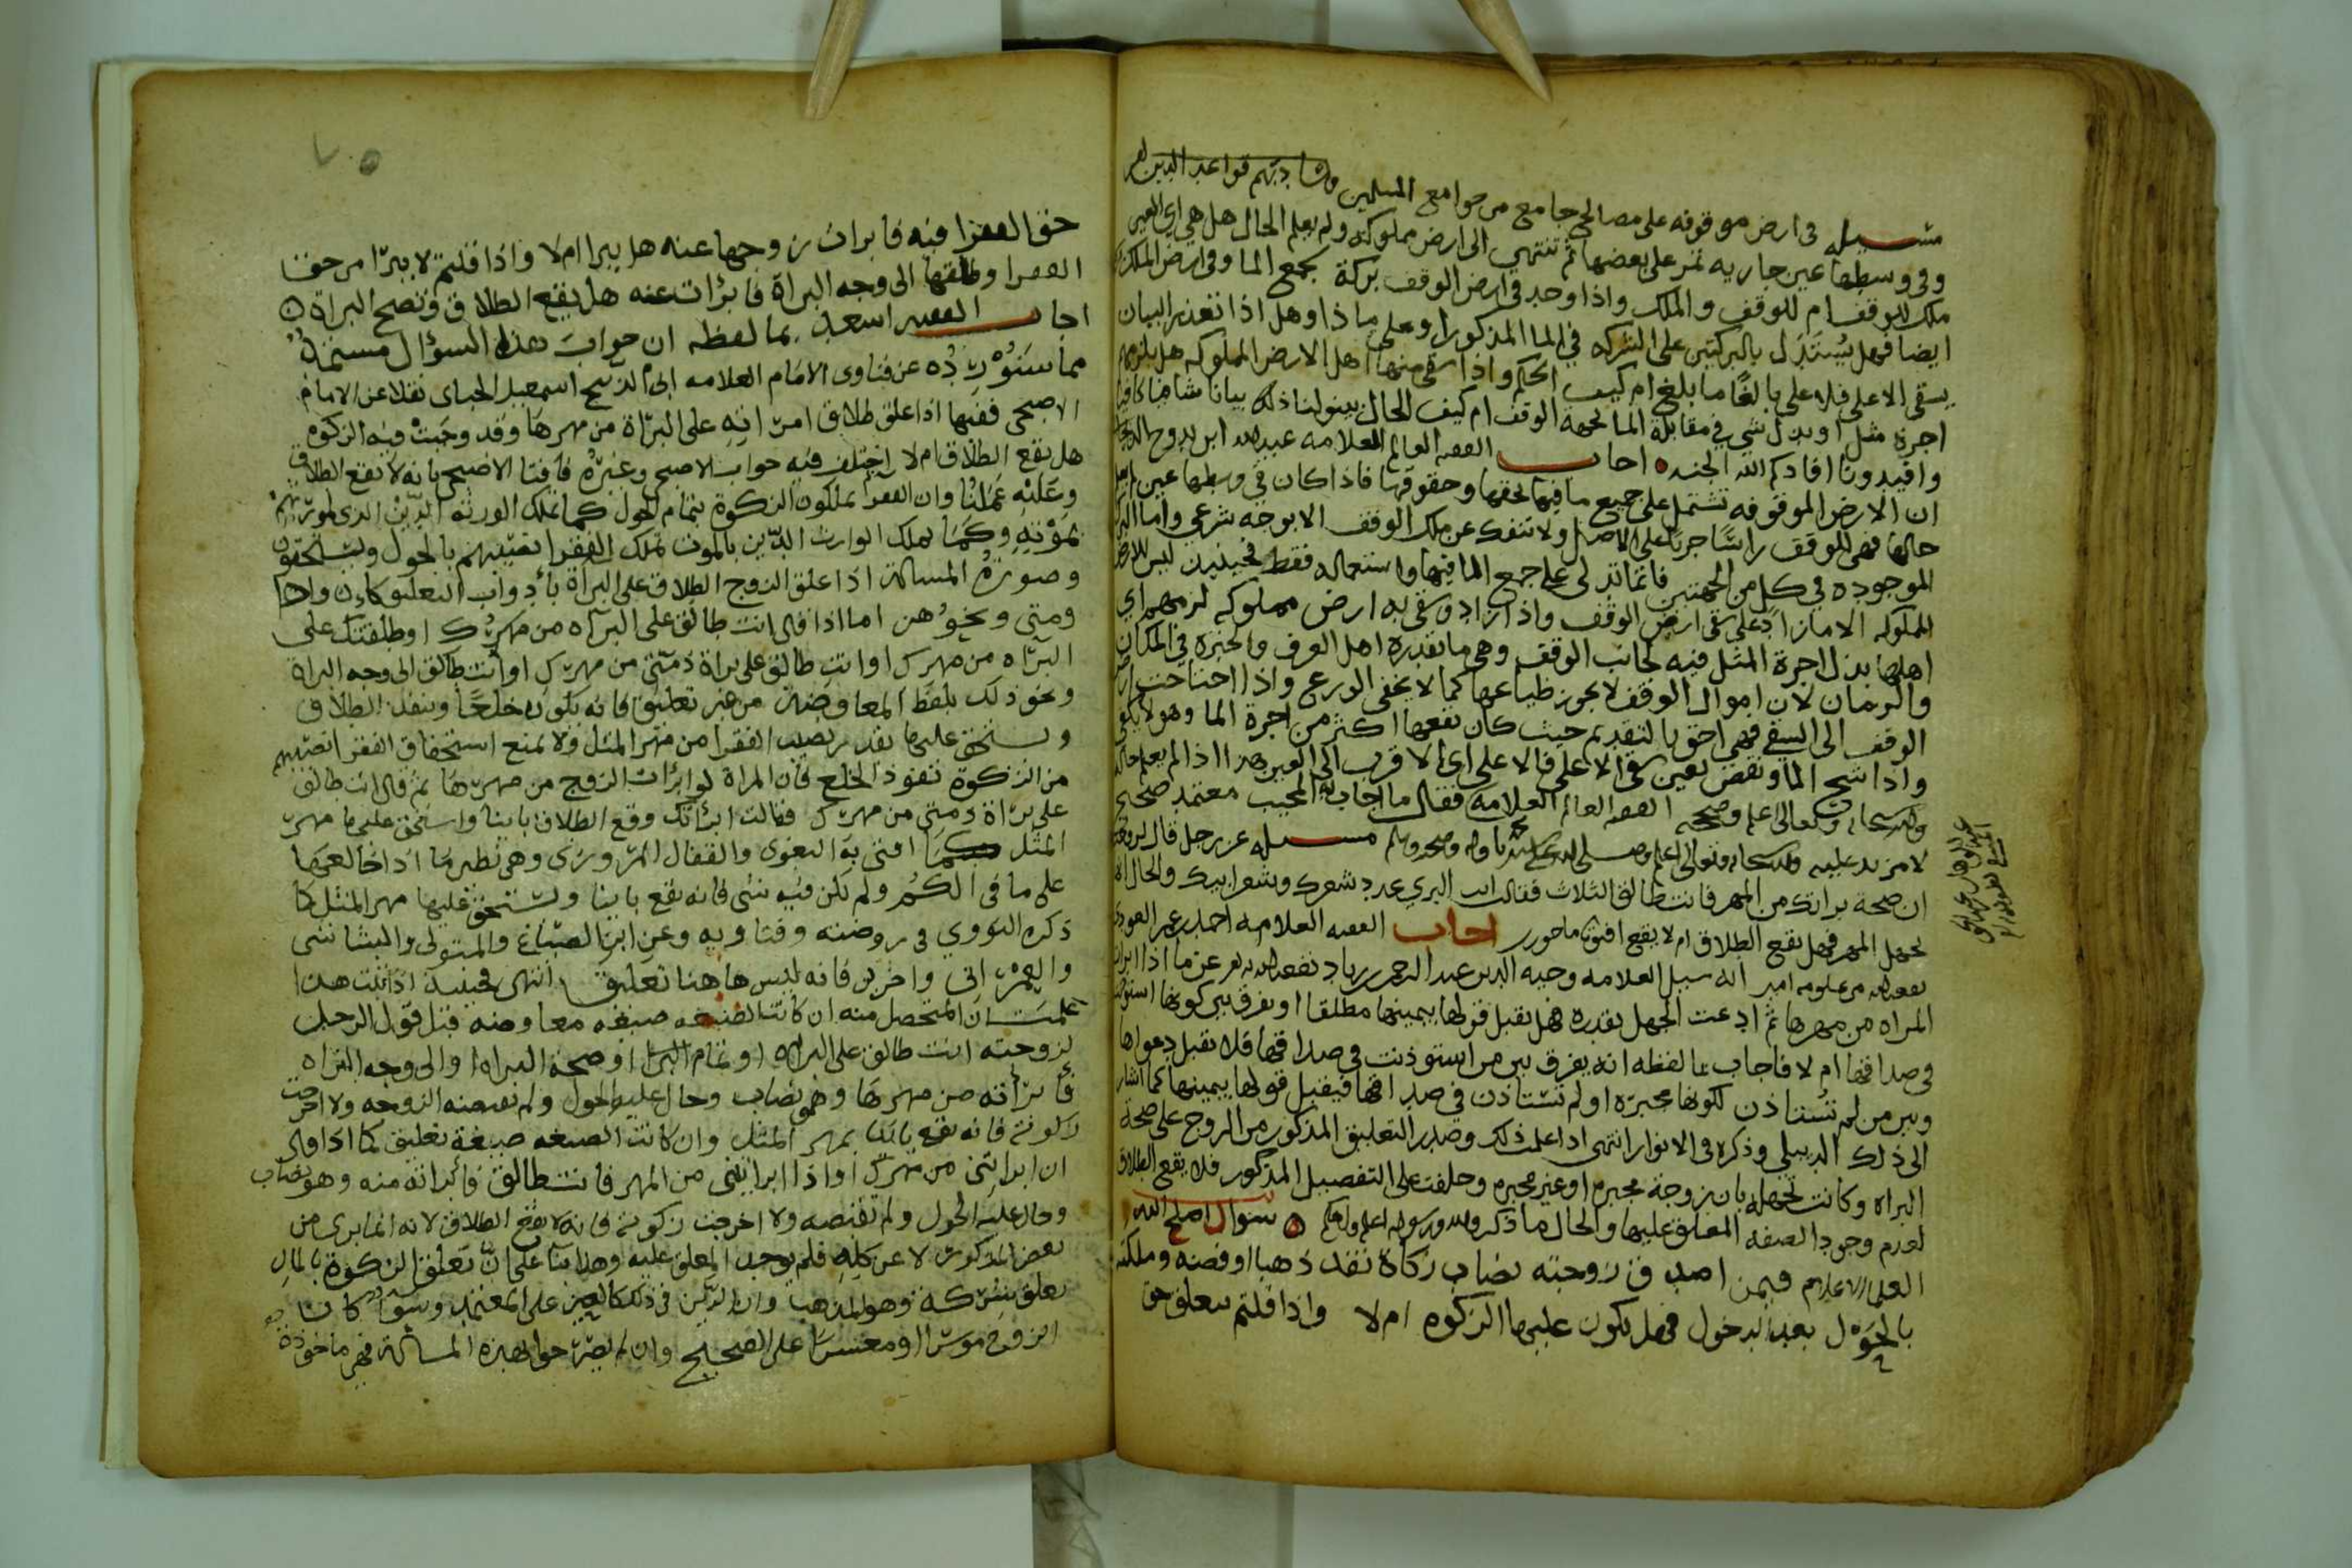 مسئله في ارض موقوفه على مصالح جامع من جوامع المسلمين
وفي وسطها عين جاريه تمر على بعضها ثم تنتهي الى ارض مملوكه ولم يعلم الحال هل هي اي العين
ملك للوقف ام للوقف والملك واذا وجد في ارض الوقف بركة تجمع الما وفي ارض الملك
ايضا فهل يستدل بالبركتين على الشركه في الما المذكور او على ماذا وهل اذا تعذر البيان
يسقى الاعلى فالاعلى بالغا ما بلغ ام كيف الحكم واذا سقى منها اهل الارض المملوكه هل يلزمهم
اجرة مثل او بدل شي في مقابلة الما لجهة الوقف ام كيف الحال بينوا لنا ذلك بيانا شافيا كافيا
وافيدونا افادكم الله الجنه اجاب الفقيه العالم العلامه عبدالله ابن
ان الارض الموقوفه تشتمل على جميع ما فيها بحقها وحقوقها فاذا كان في وسطها عين
حالها فهي للوقف جريا على الاصل ولا تنفك عن ملك الوقف الا بوجه شرعي واما البرك
الموجوده في كل من الجهتين فانما تدل على جمع الما فيها واستعماله فقط فحينئذ ليس للارض
المملوكه الا ما زاد على سقي ارض الوقف واذا زاد وسقى به ارض مملوكه لزمهم اي
اهلها بذل اجرة المثل فيه لجانب الوقف وهي ما تقدره اهل العرف والخبرة في المكان
والزمان لان اموال الوقف لا يجوز ضياعها كما لا يخفى الورع واذا احتاجت ارض
الوقف الى السقي فهي احق بالتقديم حيث كان نفعها اكثر من اجرة الما وهو لا يكفي
واذا شح الما ونقص تعين سقي الاعلى فالاعلى اي الاقرب الى العين هذا اذا لم يعلم حاله
والله سبحانه وتعالى اعلم وصححه الفقيه العالم العلامه فقال ما اجاب به المجيب معتمد صحيح
لا مزيد عليه والله سبحانه وتعالى اعلم وصلى الله على سيدنا محمد واله وصحبه وسلم مسئله عن رجل قال لزوجته
ان صحة براتك من المهر فانت طالق الثلاث فقالت انت البري عدد شعرك وشعر ابيك والحال انها
تجهل المهر فهل يقع الطلاق ام لا يقع افتونا ماجورين اجاب الفقيه العلامه احمد بن عمر
نفع الله من علومه امين انه سيل العلامه وجيه الدين عبد الرحمن بن زياد نفع الله به عن ما اذا ابرات
المراه من مهرها ثم ادعت الجهل بقدره فهل يقبل قولها بيمينها مطلقا او يفرق بين كونها استوذنت
في صداقها ام لا فاجاب بما لفظه انه يفرق بين من استوذنت في صداقها فلا يقبل دعواها
وبين من لم تستاذن لكونها مجبره او لم تستاذن في صداقها فيقبل قولها بيمينها كما اشار
الى ذلك الدبيلي وذكره في الانوار انتهى اذا علمت ذلك وصدر التعليق المذكور من الزوج على صحة
البراه وكانت تجهله بان زوجة مجبره او غير مجبره وحلفت على التفصيل المذكور فلا يقع الطلاق
لعدم وجود الصفه المعلق عليها والحال ما ذكر والله ورسوله اعلم سوال اصلح الله
العلما الاعلام فيمن اصدق زوجته نصاب زكاة نقد ذهبا او فضه وملكته
بالحول بعد الدخول فهل يكون عليها الزكوه ام لا واذا قلتم يتعلق حق
حق الفقرا فيه فابرات زوجها عنه هل يبرا ام لا واذا قلتم لا يبرا من حق
الفقرا وطلقها الى وجه البراة فابرأت عنه هل يقع الطلاق وتصح البراة
اجاب الفقيه اسعد بما لفظه ان جواب هذا السؤال مستمد
مما سنورده عن فتاوى الامام العلامه ابي الذبيح اسمعيل الحباي نقلا عن الامام
الاصبحي ففيها اذا علق طلاق امراته على البراة من مهرها وقد وجبت فيه الزكوه
هل يقع الطلاق ام لا اختلف فيه جواب الاصبحي وغيره فافتا الاصبحي بانه لا يقع الطلاق
وعليه عملنا وان الفقرا يملكون الزكوة بتمام الحول كما تملك الورثه الدين الذي لمورثهم
بموته وكما يملك الوارث الدين بالموت تملك الفقرا نصيبهم بالحول ويستحقون
وصورة المسالة اذا علق الزوج الطلاق على البراة بأدوات التعليق كان واذا
ومتى ونحوهن اما اذا قال انت طالق على البراه من مهرك او طلقتك على
البراه من مهرك او انت طالق على براة ذمتي من مهرك او انت طالق الى وجه البراة
ونحو ذلك بلفظ المعاوضة من غير تعليق فانه يكون خلعا وينفذ الطلاق
ويستحق عليها بقدر نصيب الفقرا من مهر المثل ولا يمنع استحقاق الفقرا نصيبهم
من الزكوة نفوذ الخلع فان المراة لو ابرات الزوج من مهرها ثم قال انت طالق
على براة ذمتي من مهرك فقالت ابرأتك وقع الطلاق باينا واستحق عليها مهر
المثل كما افتى به البغوي والقفال المروزي وهي نظير ما اذا خالعها
على ما في الكم ولم يكن فيه شي فانه يقع باينا ويستحق عليها مهر المثل كما
ذكره النووي في روضته وفتاويه وعن ابن الصباغ والمتولي والشاشي
والعمراني واخرين فانه ليس هاهنا تعليق انتهى فحينئذ اذا ثبت هذا
علمت ان المتحصل منه ان كانت الصيغه صيغه معاوضه قبل قول الرجل
لزوجته انت طالق على البراه او تمام البرا او صحة البراه او الى وجه البراه
فابرأته من مهرها وهو نصاب وحال عليه الحول ولم تقبضه الزوجه ولا اخرجت
زكوته فانه يقع باينا بمهر المثل وان كانت الصيغه صيغة تعليق كما اذا قال
ان ابرأتني من مهرك او اذا ابرأتني من المهر فانت طالق فابراته منه وهو نصاب
وحال عليه الحول ولم تقبضه ولا اخرجت زكوته فانه لا يقع الطلاق لانه انما بري من
بعض المذكور لا عن كله فلم يوجد المعلق عليه وهذا بنا على ان تعلق الزكوة بالمال
تعلق شركة وهو المذهب وان الدين في ذلك كالعين على المعتمد وسوا كان
الزوج موسرا او معسرا على الصحيح وان لم يصرحوا بهذه المسالة فهي ماخوذة